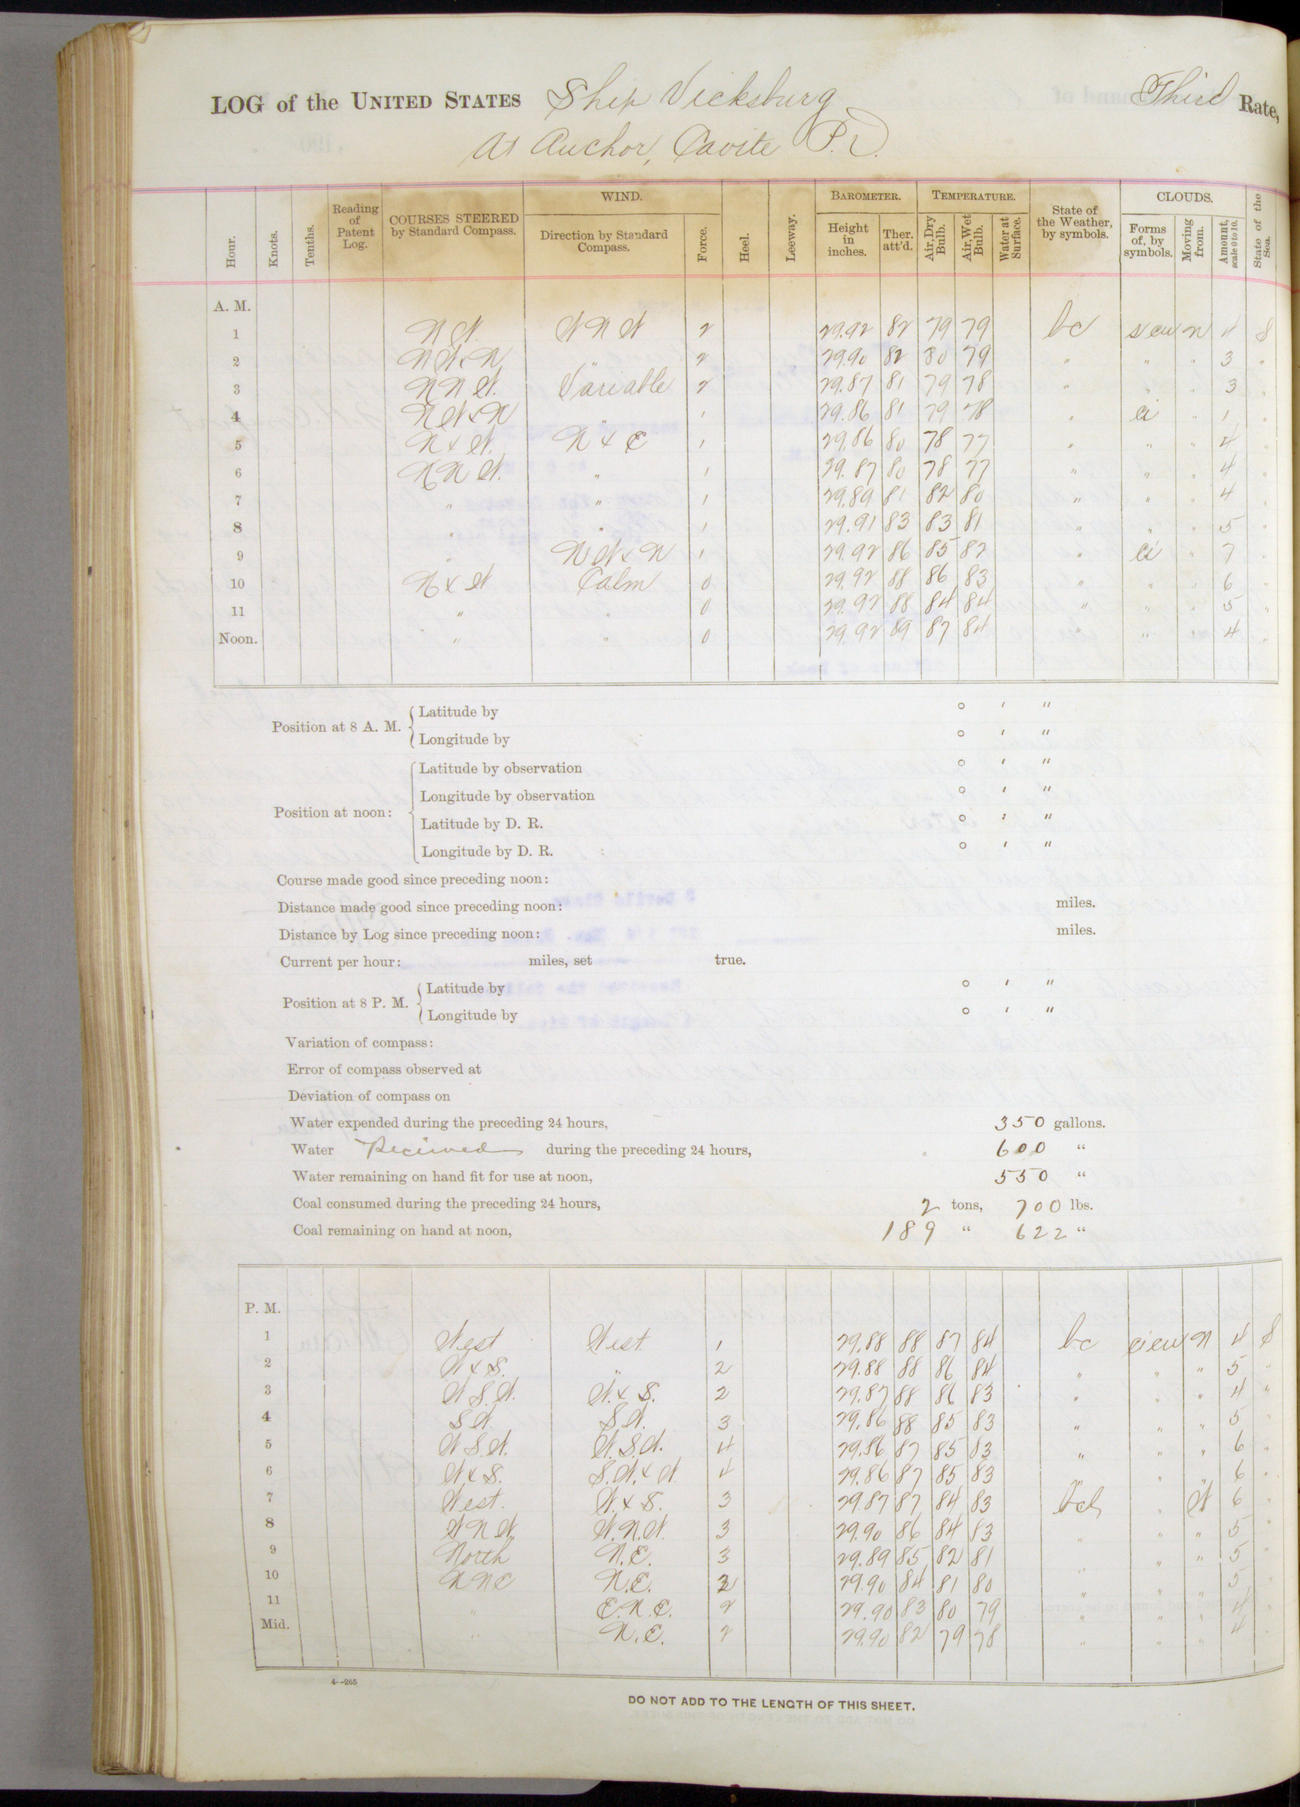 LOG of the UNITED STATES Ship Vicksburg Third Rate,
At Anchor, Cavite P.I.
Hour. Knots. Tenths. Reading of Patent Log. COURSES STEERED by Standard Compass. WIND. Direction by Standard Compass. Force. Heel. Leeway. BAROMETER. Height in inches. Ther. att'd. TEMPERATURE. Air, Dry Bulb. Air, Wet Bulb. Water at Surface. State of the Weather, by symbols. CLOUDS. Forms of, by symbols. Moving from. Amount, scale 0 to 10. State of the Sea.
A. M.
1 NW WNW 2 29.92 82 79 79 bc n 4 S
2 NWxN " 2 29.90 82 80 79 " " " 3 "
3 NNW. Variable 2 29.87 81 79 78 " " " 3 "
4 NWxN " 1 29.86 81 79 78 " ci " 1 "
5 NxW. NxE 1 29.86 80 78 77 " " " 4 "
6 NNW. " 1 29.87 80 78 77 " " " 4 "
7 " " 1 29.89 81 82 80 " " " 4 "
8 " " 1 29.91 83 83 81 " " " 5 "
9 " NWxN 1 29.92 86 85 82 " ci " 7 "
10 NxW Calm 0 29.92 88 86 83 " " " 6 "
11 " " 0 29.92 88 84 84 " " " 5 "
Noon. " " 0 29.92 89 87 84 " " " 4 "
Position at 8 A. M. Latitude by ° ' "
Longitude by ° ' "
Position at noon: Latitude by observation ° ' "
Longitude by observation ° ' "
Latitude by D. R. ° ' "
Longitude by D. R. : ° ' "
Course made good since preceding noon:
Distance made good since preceding noon: miles.
Distance by Log since preceding noon: miles.
Current per hour: miles, set true.
Position at 8 P. M. Latitude by ° ' "
Longitude by ° ' "
Variation of compass:
Error of compass observed at
Deviation of compass on
Water expended during the preceding 24 hours, 350 gallons.
Water Received during the preceding 24 hours, 600 "
Water remaining on hand fit for use at noon, 550 "
Coal consumed during the preceding 24 hours, 2 tons, 700 lbs.
Coal remaining on hand at noon, 189 " 622 "
P. M.
1 West West 1 29.88 88 87 84 bc cicu N 4 S
2 WxS. " 2 29.88 88 86 84 " " " 5 "
3 WSW. WxS. 2 29.87 88 86 83 " " " 4 "
4 SW. SW. 3 29.86 88 85 83 " " " 5 "
5 WSW. WSW. 4 29.86 87 85 83 " " " 6 "
6 WxS. S.W.xW 4 29.86 87 85 83 " " " 6 "
7 West. WxS. 3 29.87 87 84 83 bcl " W 6 "
8 WNW W.N.W. 3 29.90 86 84 83 " " " 5 "
9 North N.E. 3 29.89 85 82 81 " " " 5 "
10 NNE N.E. 2 29.90 84 81 80 " " " 5 "
11 " E.N.E. 2 29.90 83 80 79 " " " 4 "
Mid. " N.E. 2 29.90 82 79 78 " " " 4 "
4--265
DO NOT ADD TO THE LENGTH OF THIS SHEET.